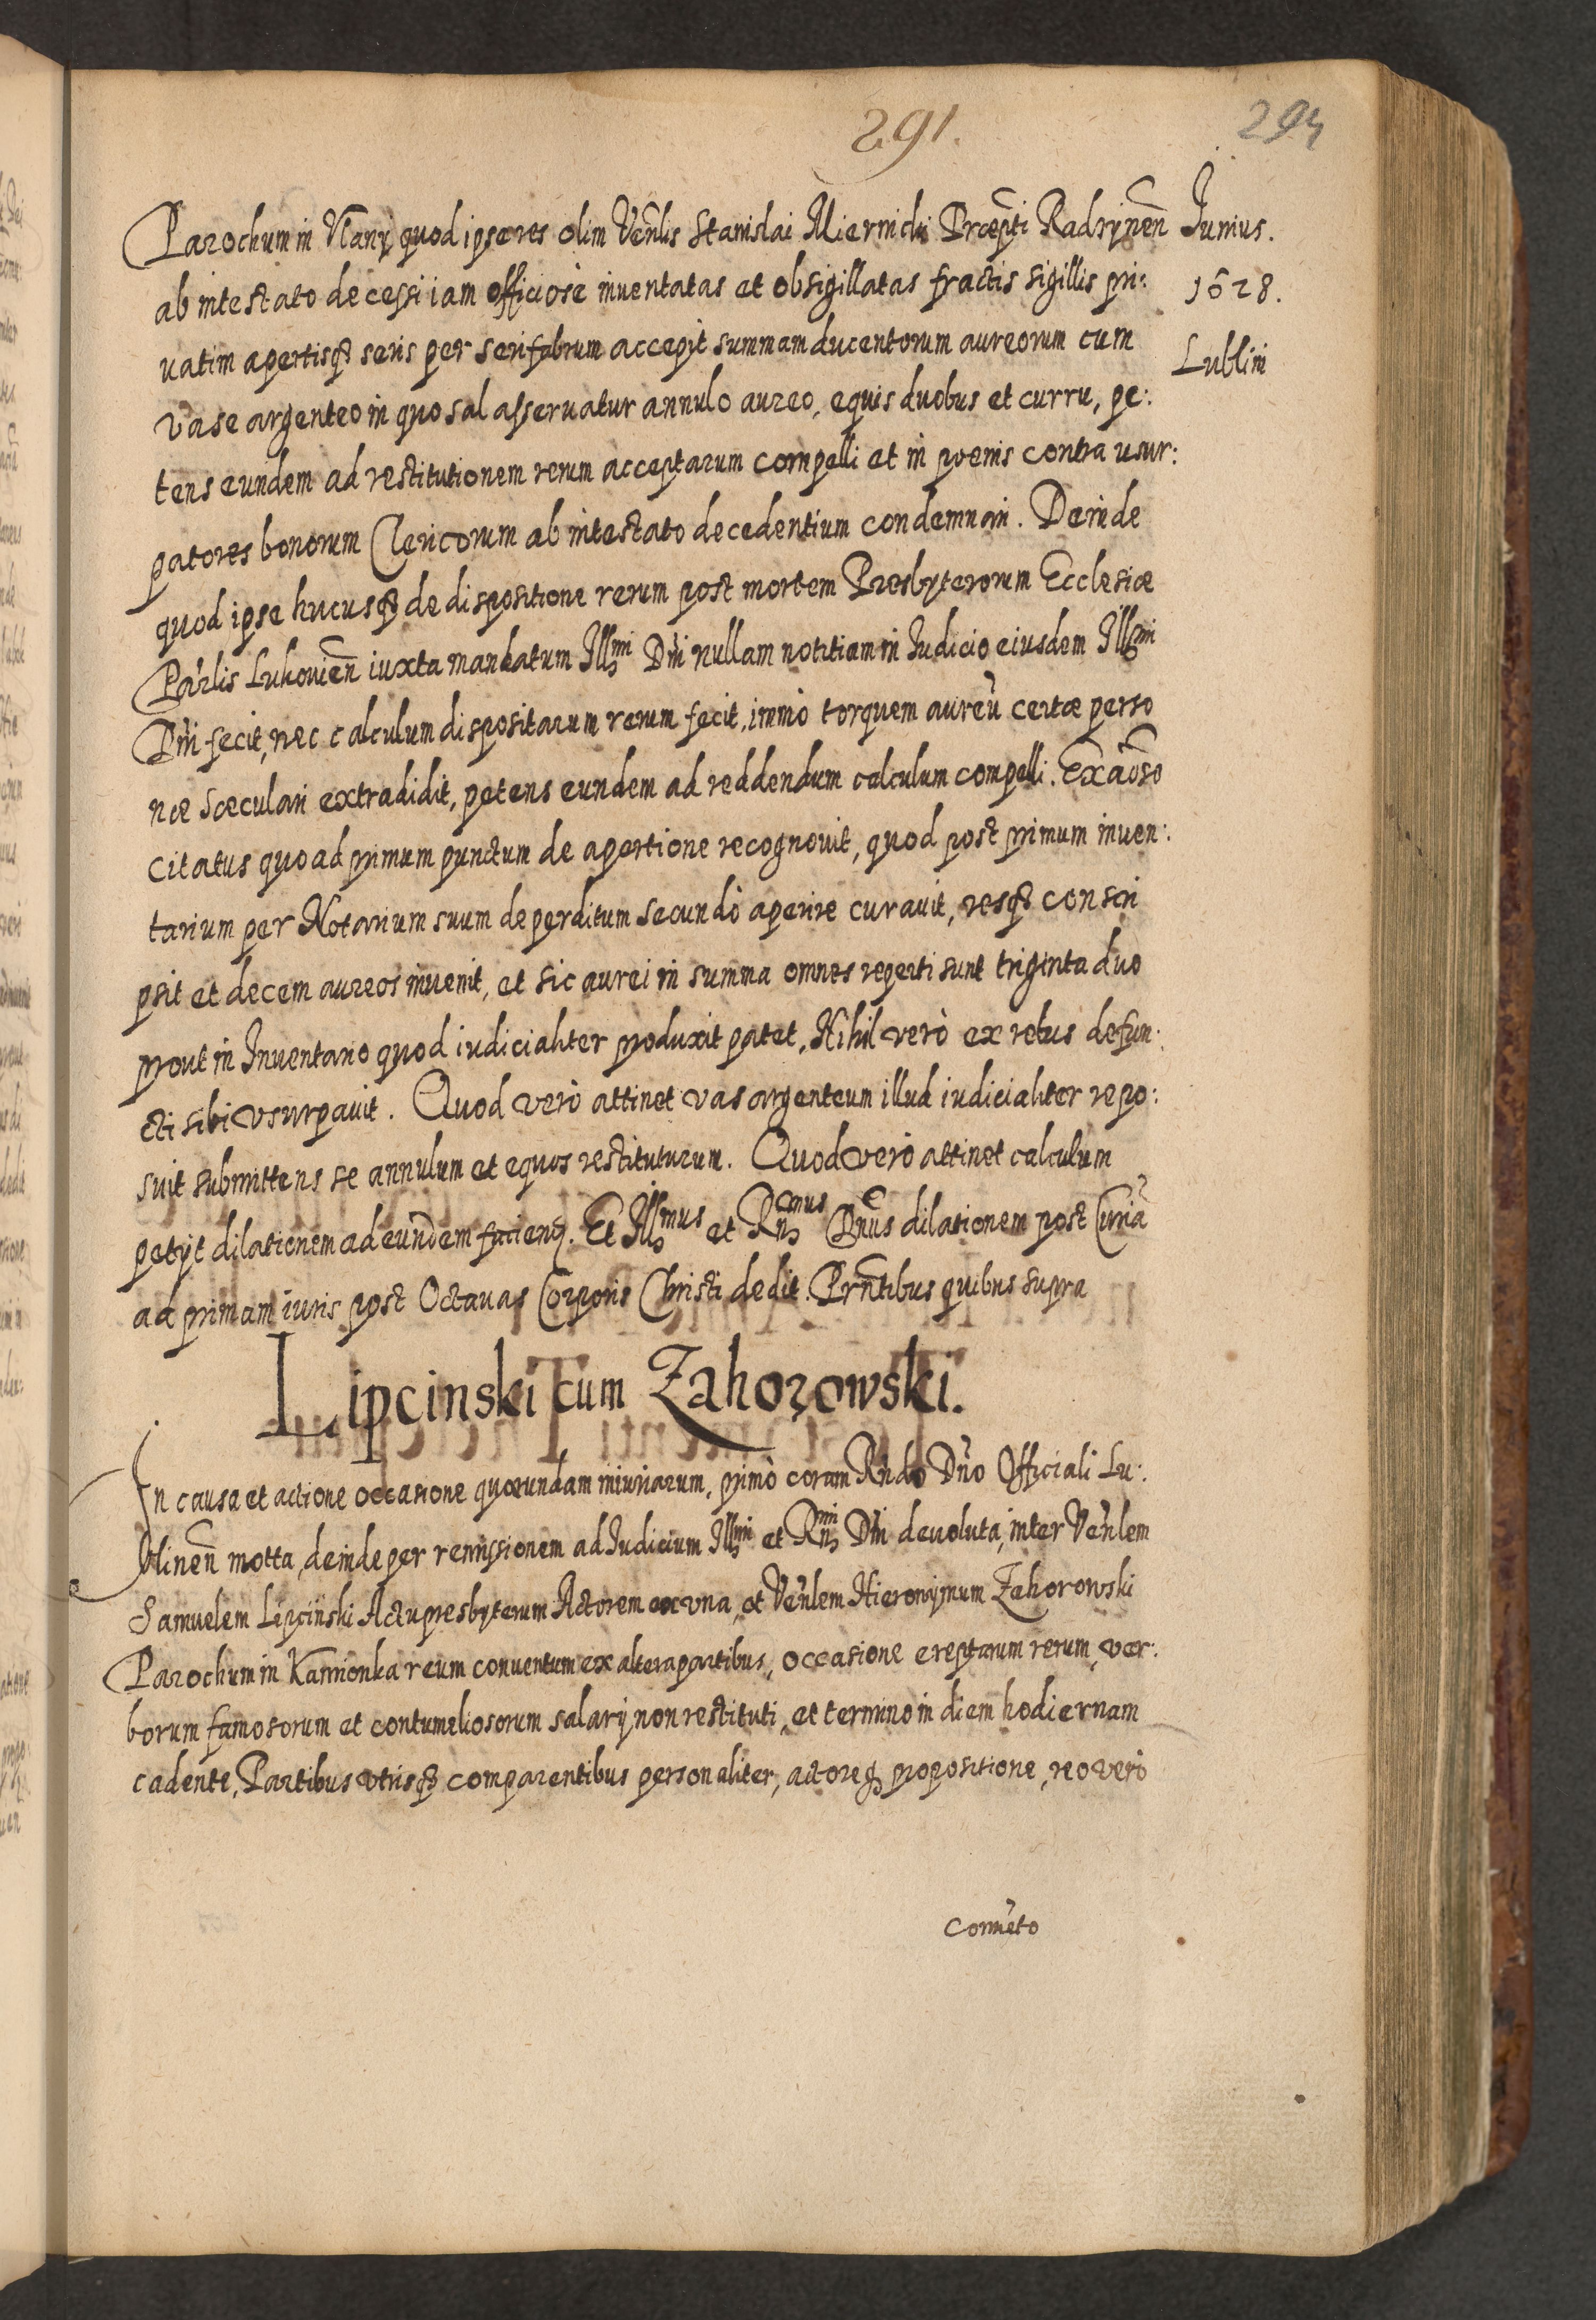 291.
294
Parochum in Vlany quod ipse res olim Venlis Stanislai Miernicki Præpti Radzynen
Junius.
ab intestato decessi iam officiose inventatas et obsigillatas fractis sigillis pri:
1628.
uatim apertisq seris per serifabrum accepit summam ducentorum aureorum cum
Lublini
vase argenteo in quo sal asseruatur annulo aureo, equis duobus et curru, pe:
tens eundem ad restitutionem rerum acceptarum compelli et in poenis contra usur:
patores bonorum Clericorum ab intestato decedentium condemnari. Deinde
quod ipse hucusq de dispositione rerum post mortem Presbyterorum Ecclesiæ
Parlis Lukovien iuxta mandatum Illmi Dni nullam notitiam in Iudicio eiusdem Illmi
Dni fecit, nec calculum dispositarum rerum fecit, immò torquem aureu certæ perso
næ sæculari extradidit, petens eundem ad reddendum calculum compelli. Ex aduso
citatus quoad primum punctum de apertione recognouit, quod post primum inuen:
tarium per Notarium suum deperditum secundò aperire curauit, resq conscri
psit et decem aureos inuenit, et sic aurei in summa omnes reperti sunt triginta duo
prout in Inuentario quod iudicialiter produxit patet, Nihil verò ex rebus defun:
cti sibi vsurpauit. Quod verò attinet vas argenteum illud iudicialiter repo:
suit submittens se annulum et equos restituturum. Quod verò attinet calculum
petijt dilationem ad eundem faciend. Et Illmus et Rndmus Dnus dilationem post Curia
ad primam iuris post Octauas Corporis Christi dedit. Prntibus quibus supra
Lipcinski cum Zahorowski.
In causa et actione occasione quorundam iniuriarum, primò coram Rndo Dno Officiali Lu:
blinen motta, deinde per remissionem ad Iudicium Illmi et Rndmi Dni deuoluta, inter Venlem
Samuelem Lipcinski Actupresbyterum Actorem ex vna, et Venlem Hieronymum Zahorowski
Parochum in Kamionka reum conuentum ex altera partibus, occasione ereptarum rerum, ver:
borum famosorum et contumeliosorum salarij non restituti, et termino in diem hodiernam
cadente, Partibus vtrisq comparentibus personaliter, actoreq propositione, reo verò
conueto